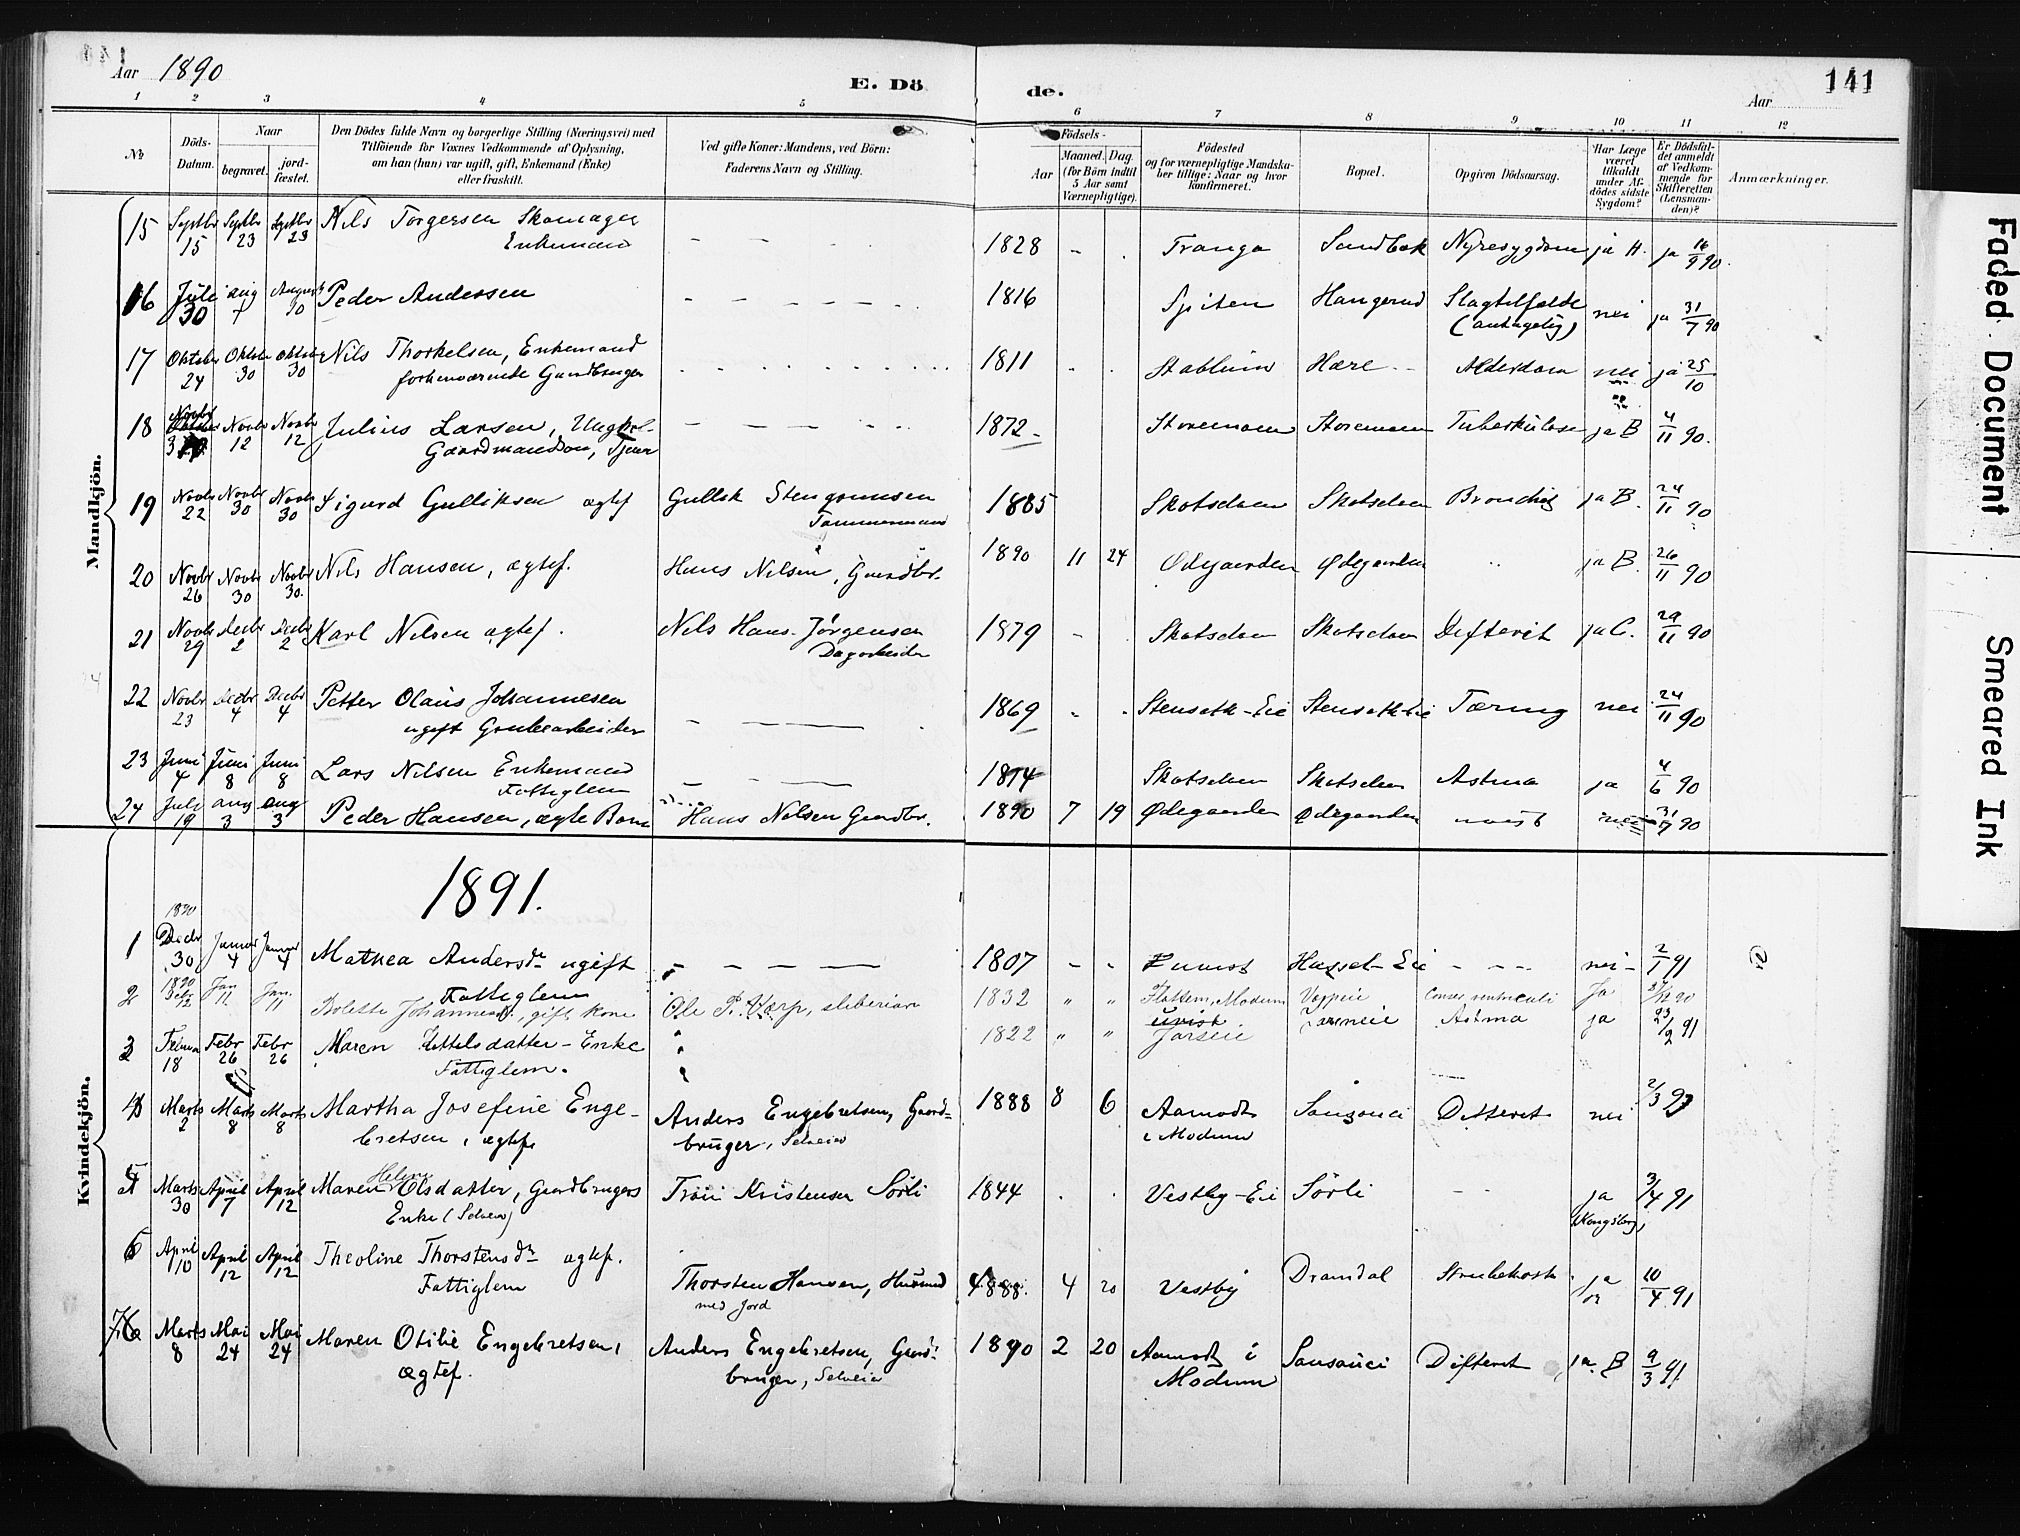 Aar 1890
E. Döde.
Aar
141
1 2 3 4 5 6 7 8 9 10 11 12
№
Döds-Datum.
Naar
begravet.
jord-fæstet.
Den Dödes fulde Navn og borgerlige Stilling (Næringsvei) med
Tilföiende for Voxnes Vedkommende af Oplysning,
om han (hun) var ugift, gift, Enkemand (Enke)
eller fraskilt.
Ved gifte Koner: Mandens, ved Börn:
Faderens Navn og Stilling.
Födsels-
Aar
Maaned. Dag.
(for Börn indtil
5 Aar samt
Værnepligtige).
Födested
og for værnepligtige Mandska-
ber tillige: Naar og hvor
konfirmeret.
Bopæl.
Opgiven Dödsaarsag.
Har Læge
været
tilkaldt
under Af-
dödes sidste
Sygdom?
Er Dödsfal-
det anmeldt
af Vedkom-
mende for
Skifteretten
(Lensman-
den)?
Anmærkninger.
Mandkjön.
15 Septbr 15 Septbr 23 Septbr 23 Nils Torgersen Skomager Enkemand - - 1828 - . Tranga Sandbæk Nyresygdom ja H. ja 16/9 90.
16 Juli 30 aug 7 August 10 Peder Andersen - - - - - - 1816 Spiten Haugerud Slagtilfælde (antagelig) nei ja 31/7 90
17 Oktober 24 Oktbr 30 Oktbr 30 Nils Thorkelsen, Enkemand forhenværende Gaardbruger 1811 Stablum Hære Alderdom nei ja 25/10
18 Novbr 3 Novbr 12 Novbr 12 Julius Larsen, Ungkrl. Gaardmandssøn, Tjener - - - 1872 - Storemoen Storemoen Tuberkulose ja B 4/11 90.
19 Novbr 22 Novbr 30 Novbr 30 Sigurd Gulliksen ægtef Gullik Stengrimsen Tømmermand 1885 Skotselven Skotselven Bronchit ja B. 24/11 90
20 Novbr 26 Novbr 30 Novbr 30. Nils Hansen, ægtef. Hans Nilsen, Gaardbr. 1890 11 24 Ødegaarden Ødegaarden ja B. 26/11 90
21 Novbr 29 Decbr 2 Decbr 2 Karl Nilsen ægtef. Nils Hans. Jørgensen Dagarbeider 1879 - . Skotselven Skotselven Difterit ja C. 29/11 90
22 Novbr 23 Decbr 4 Decbr 4 Petter Olaus Johannesen ugift Grubearbeider - - 1869 Stenseth-Eie Stenseth-Eie Tæring nei 24/11 90
23 Juni 4 Juni 8 Juni 8 Lars Nilsen Enkemand Fattiglem - - 1814 Skotselven Skotselven Astma ja 4/6 90
24 July 19 aug 3 aug 3 Peder Hansen, ægte Barn Hans Nilsen Gaardbr. 1890 7 19 Ødegaarden Ødegaarden uvist nei 31/7 90
1891.
Kvindekjön.
1 1890 Decbr 30 Januar 4 Januar 4 Mathea Andersdr ugift Fattiglem - - - 1807 - - uvist Hassel-Eie - - - nei - 2/1 91
2 1890 Jan 11 Jan. 11 Bolette Johannesd., gift kone Ole P. Værp, sliberiar 1832 " " Flottem, Modum Væpeie Cancer ventriculi Ja 90
3 Februar 18 Febr 26 Febr 26 Maren Kittelsdatter - Enke Fattiglem. 1822 " " uvist Jarseie Astma ja 91
4 Marts 2 Marts 8 Marts 8 Martha Josefine Engebretsen, ægtef. Anders Engebretsen, Gaard-bruger, Selveier 1888 8 6 Aamodt i Modum Sansouci Difteret nei 2/3 91
5 Marts 30 April 7 April 12 Maren Helene Olsdatter, Gaardbrugers Enke (Selveier) Kristensen Sörli 1844 . . Vestby-Eie Sörli - - ja (Kongsberg) 3/4 91
6 April 10 April 12 April 12 Theoline Thorstensdr ægtef. Fattiglem Thorsten Hansen, Husmd med Jord 1888. 4 20 Vestby Dramdal Strubehoste ja 10/4 91
7 Marts 8 Mai 24 Mai 24 Maren Otilie Engebretsen, ægtef. Anders Engebretsen, Gaard-bruger, Selveier 1890 2 20 Aamodt i Modum Sansouci Difteret ja. B 9/3 91
Faded Document
Smeared Ink